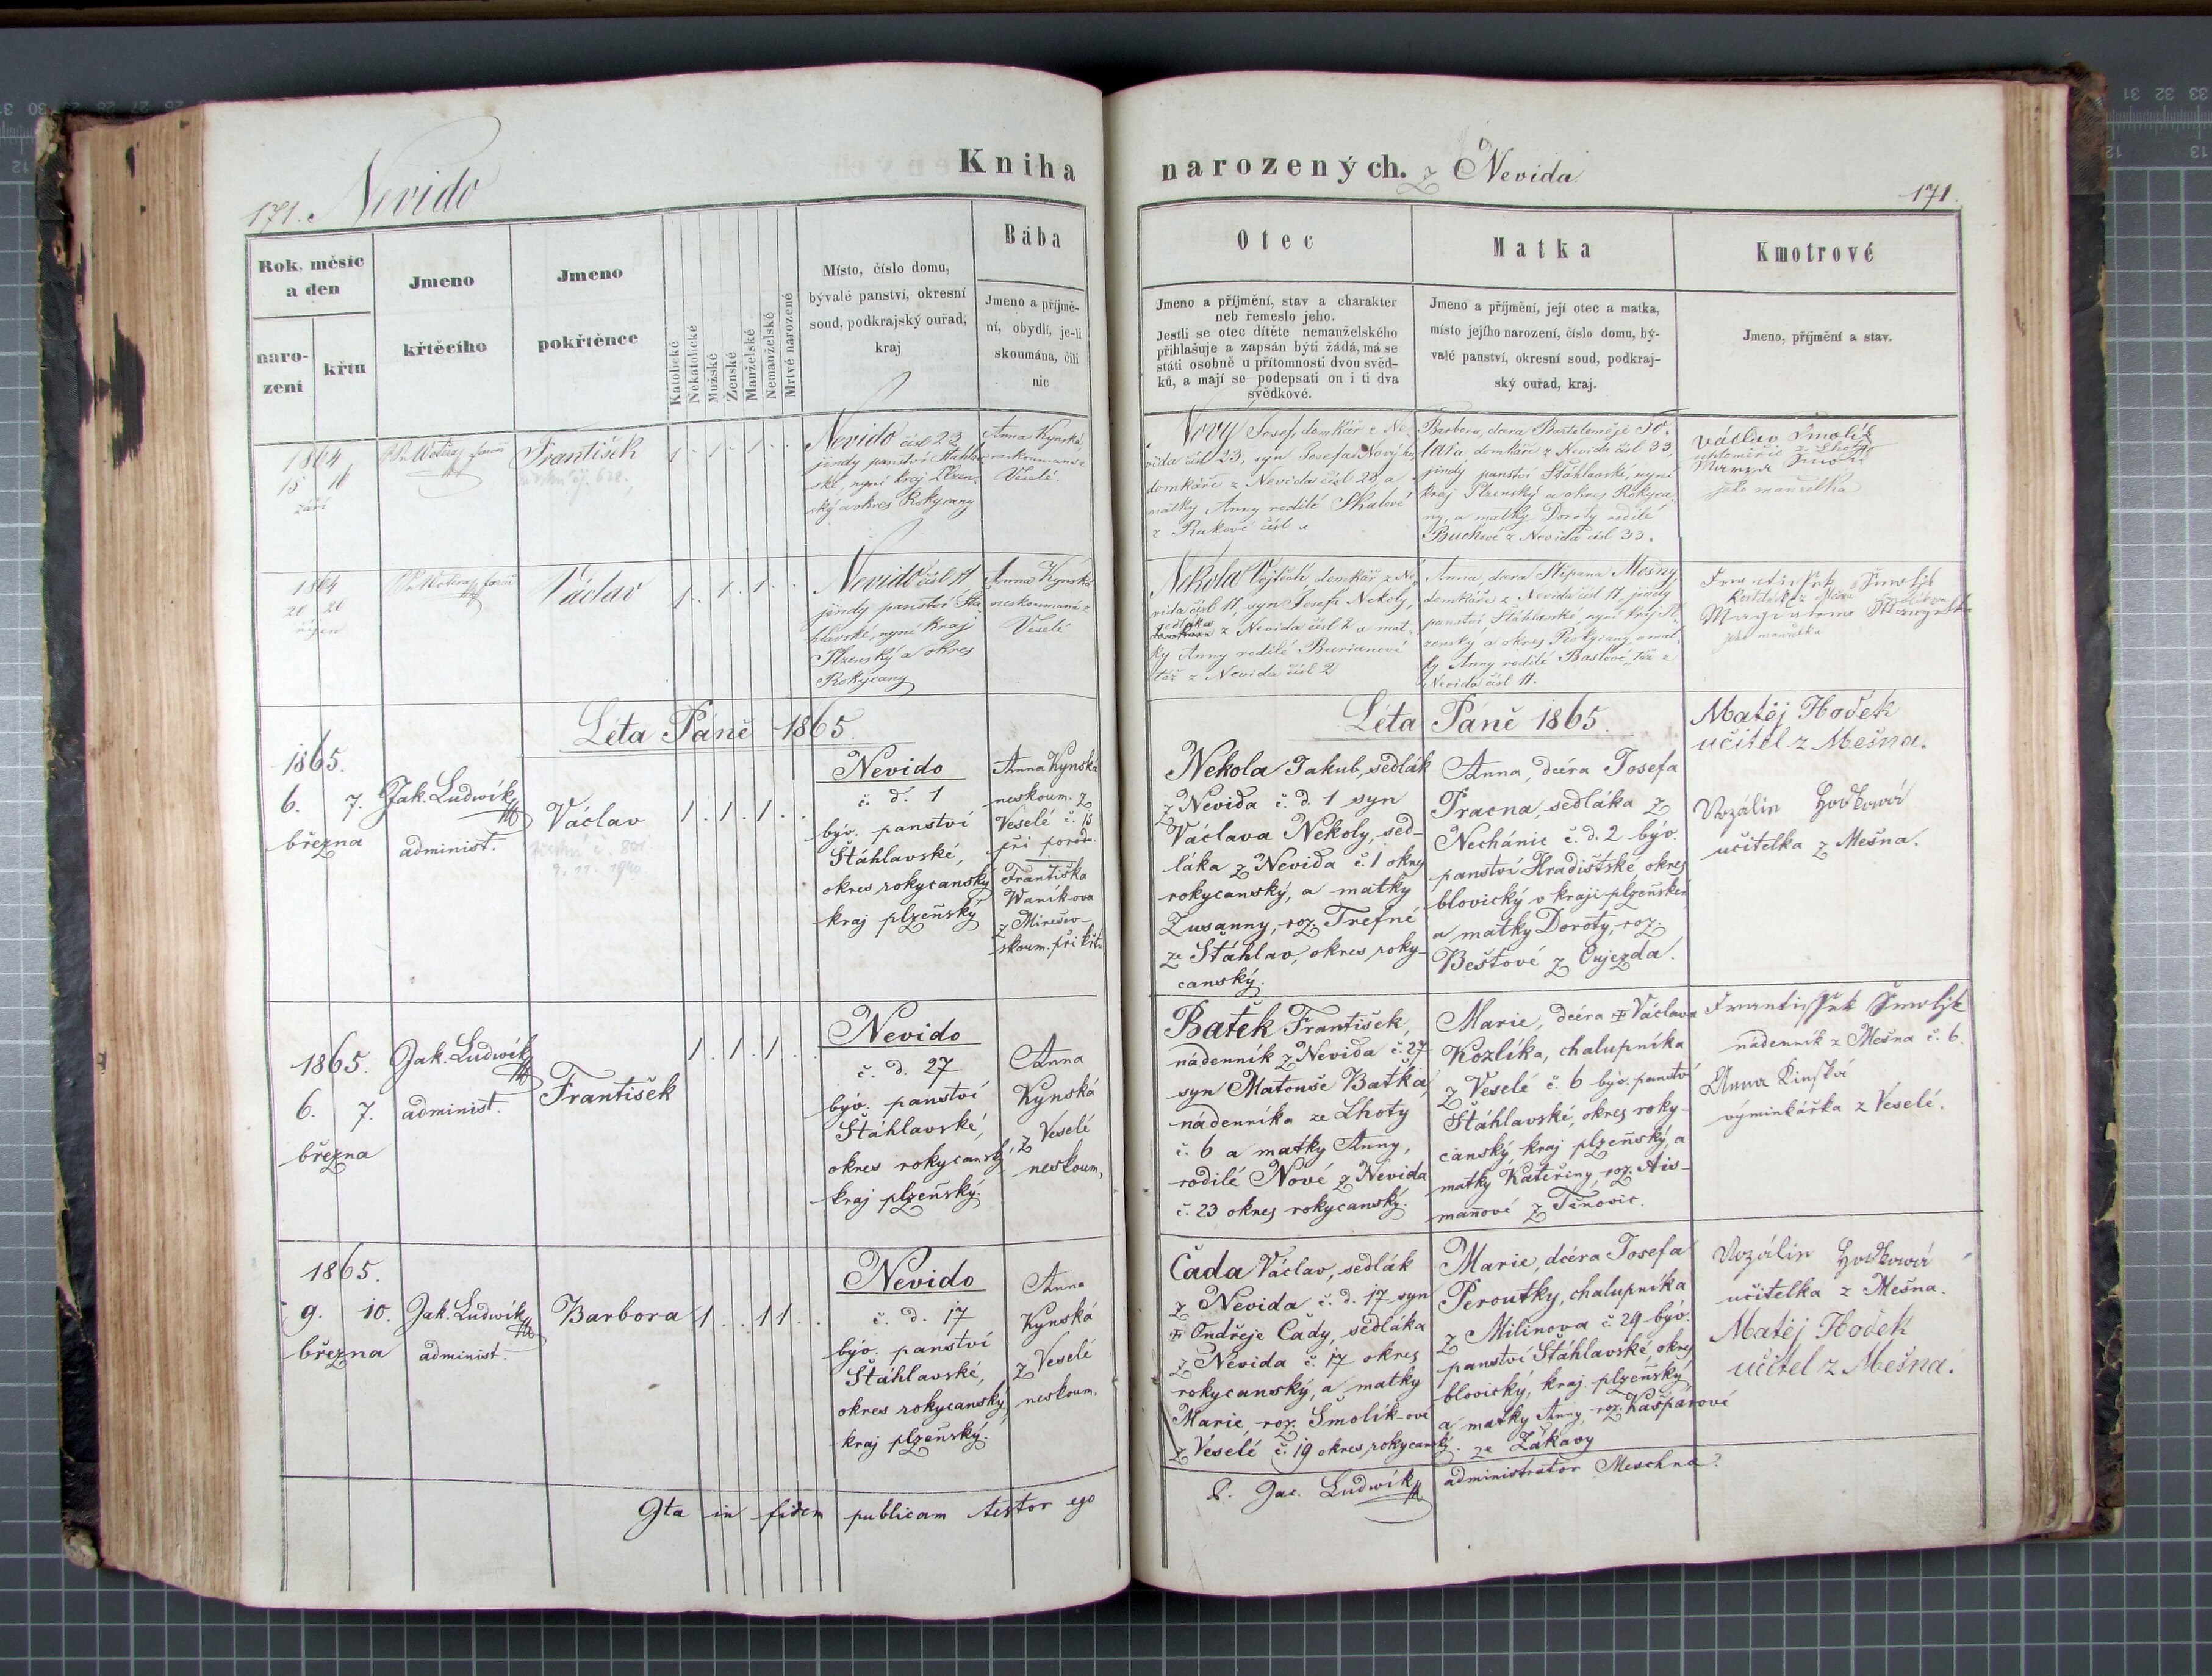 Kniha
narozených. z Nevida.
171. Nevido
171.
Rok, měsíc
a den
naro-
zení
křtu
Jmeno
křtěcího
Jmeno
pokřtěnce
Katolické
Nekatolické
Mužské
Ženské
Manželské
Nemanželské
Mrtvé narozené
Místo, číslo domu,
bývalé panství, okresní
soud, podkrajský ouřad,
kraj
Bába
Jmeno a příjmě-
ní, obydlí, je-li
skoumána, čili
nic
Otec
Jmeno a příjmění, stav a charakter
neb řemeslo jeho.
Jestli se otec dítěte nemanželského
přihlašuje a zapsán býti žádá, má se
státi osobně u přítomnosti dvou svěd-
ků, a mají se podepsati on i ti dva
svědkové.
Matka
Jmeno a příjmění, její otec a matka,
místo jejího narození, číslo domu, bý-
valé panství, okresní soud, podkraj-
ský ouřad, kraj.
Kmotrové
Jmeno, příjmění a stav.
1864
15 16
září
František
1 . 1 . 1 . .
Nevido čísl 23
jindy panství Šťáhlav
ské, nyní kraj Plzen-
ský a okres Rokycany
Anna Kynská,
neskoumaná z
Veselé.
Nový Josef, domkář z Ne-
vida čísl 23, syn Josefa Nového
domkáře z Nevida čísl 23, a
matky Anny rodilé Skalové
z Rakové čísl
Barbora, dcera Bartoloměje
domkáře z Nevida čísl 33,
jindy panství Šťáhlavské, nyní
kraj Plzenský a okres Rokyca-
ny, a matky Doroty rodilé
z Nevida čísl 33.
Václav Smolik
z Lhoty
jeho manželka
1864
20 20
říjen
Václav
1 . 1 . 1 . .
Nevido čísl 11
jindy panství Šťá
hlavské, nyní kraj
Plzenský a okres
Rokycany
Anna Kynská
neskoumaná z
Veselé
Nekola Vojtěch domkář z Ne-
vida čísl 11, syn Josefa Nekoly,
sedláka
z Nevida čísl 2 a mat-
ky Anny rodilé Burianové
též z Nevida čísl 2
Anna, dcera Štěpana Mešny,
domkáře z Nevida čísl 11, jindy
panství Šťáhlavské, nyní kraj Pl-
zenský a okres Rokycany, a mat-
ky Anny rodilé Baslové, též z
Nevida čísl 11.
Frantissek Smolik
jeho manželka
Léta Páně 1865.
Léta Páně 1865.
1865.
6. 7.
března
Jak. Ludwík
administ.
Václav
1 . 1 . 1 . .
Nevido
č. d. 1
býv. panství
Šťáhlavské,
okres rokycanský
kraj plzeňský
Anna Kynská
neskoum. z
Veselé č. 15
při porod.
Františka
Waník-ova
z Mirešov-
skoum. při křtu
Nekola Jakub, sedlák
z Nevida č. d. 1 syn
Václava Nekoly, sed-
láka z Nevida č. 1 okres
rokycanský, a matky
Zusanny, roz. Trefné
ze Šťáhlav, okres roky-
canský.
Anna, dcéra Josefa
Pracna, sedláka z
Nechánic č. d. 2 býv.
panství Hradišťské, okres
blovický v kraji plzeňském
a matky Doroty, roz.
Beštové z Oujezda.
Matěj Hodek
učitel z Mešna.
Rozálin Hodkowá
učitelka z Mešna.
1865.
6. 7.
března
Jak. Ludwík
administ.
František
1 . 1 . 1 . .
Nevido
č. d. 27
býv. panství
Šťáhlavské,
okres rokycanský
kraj plzeňský.
Anna
Kynská
z Veselé
neskoum.
Baťek František,
nádenník z Nevida č. 27
syn Matouše Baťka,
nádenníka ze Lhoty
č. 6 a matky Anny,
rodilé Nové z Nevida
č. 23 okres rokycanský.
Marie, dcéra ✝ Václava
Kozlíka, chalupníka
z Veselé č. 6 býv. panství
Šťáhlavské, okres roky-
canský, kraj plzeňský, a
matky Kateřiny, roz. Ais-
manové z Těnovic.
Frantissek Smolik
nádenník z Mešna č. 6.
Anna Kinská
výminkářka z Veselé.
1865.
9. 10.
března
Jak. Ludwík
administ.
Barbora
1 . . 1 1 . .
Nevido
č. d. 17
býv. panství
Šťáhlavské,
okres rokycanský
kraj plzeňský.
Anna
Kynská
z Veselé
neskoum.
Čada Václav, sedlák
z Nevida č. d. 17 syn
✝ Ondřeje Čady, sedláka
z Nevida č. 17 okres
rokycanský, a matky
Marie, roz. Smolík-ové
z Veselé č. 19 okres rokycanský.
Marie, dcéra Josefa
Peroutky, chalupníka
z Milinova č. 29 býv.
panství Šťáhlavské, okres
blovický, kraj plzeňský
a matky Anny, roz. Kašpárové
ze Žákavy
Rozálin Hodkowá
učitelka z Mešna.
Matěj Hodek
učitel z Mešna.
Ita in fidem publicam testor ego
P. Jac. Ludwík administrator Meschna.